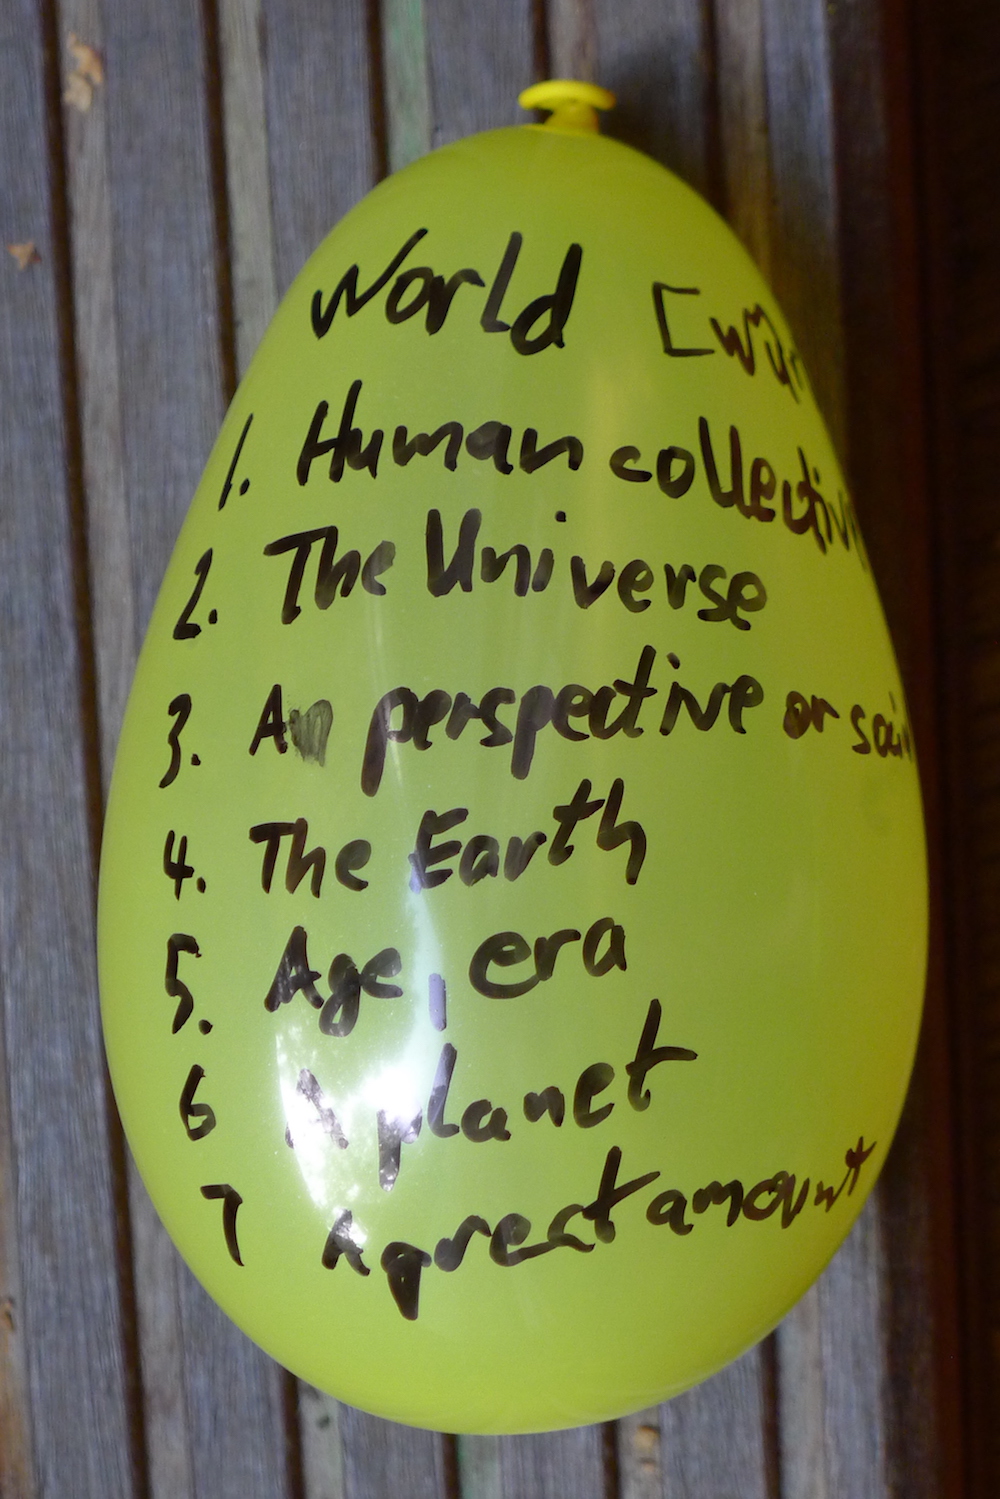 World
1. Human
2. The Universe
3. A perspective or
4. The Earth
5. Age, era
6 A planet
7 A great amount